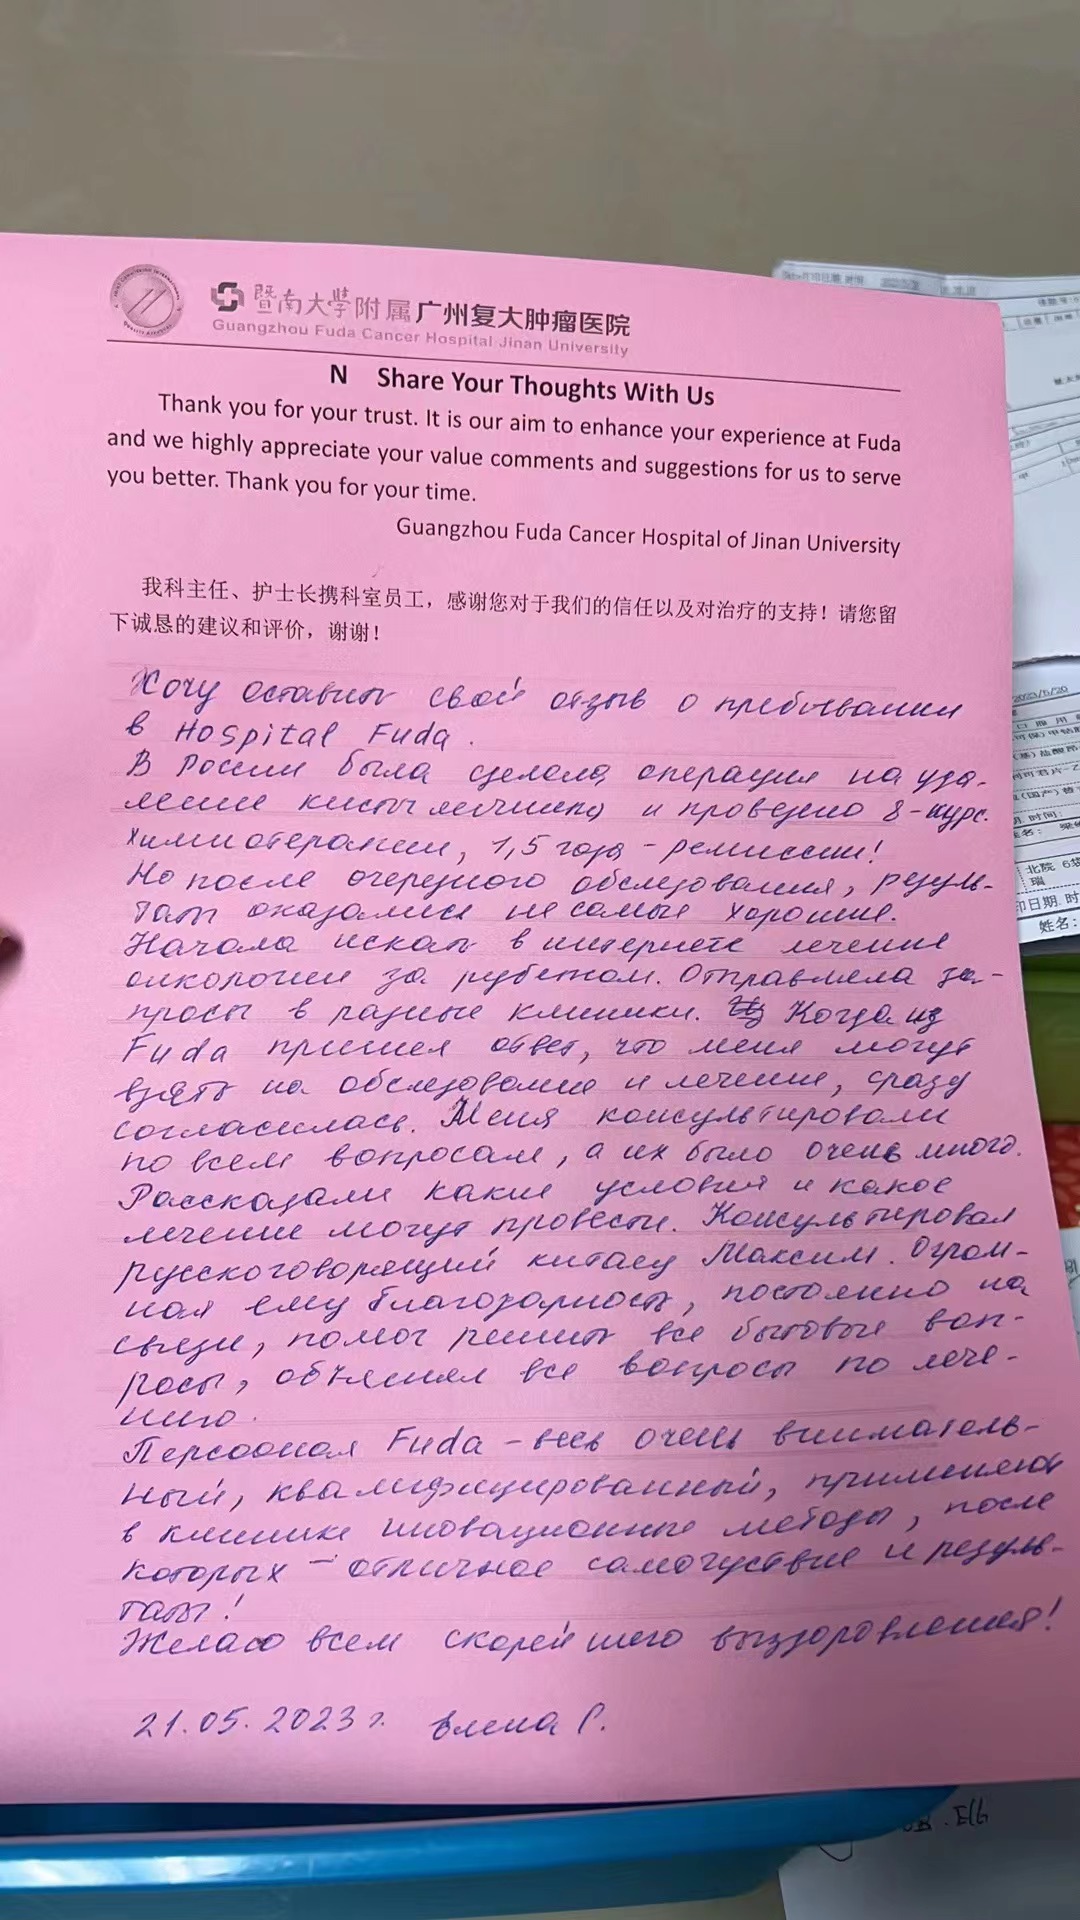 暨南大學附属广州复大肿瘤医院
Guangzhou Fuda Cancer Hospital Jinan University
N Share Your Thoughts With Us
Thank you for your trust. It is our aim to enhance your experience at Fuda
and we highly appreciate your value comments and suggestions for us to serve
you better. Thank you for your time.
Guangzhou Fuda Cancer Hospital of Jinan University
我科主任、护士长携科室员工，感谢您对于我们的信任以及对治疗的支持！请您留
下诚恳的建议和评价，谢谢！
Хочу оставить свой отзыв о пребывании
в Hospital Fuda.
В России была сделана операция на уда-
ление кисты яичника и проведено 8-курс.
химиотерапии, 1,5 года - ремиссии!
Но после очередного обследования, резуль-
таты оказались не самые хорошие.
Начала искать в интернете лечение
онкологии за рубежом. Отправляла за-
просы в разные клиники. Когда из
Fuda пришел ответ, что меня могут
взять на обследование и лечение, сразу
согласилась. Меня консультировали
по всем вопросам, а их было очень много.
Рассказали какие условия и какое
лечение могут провести. Консультировал
русскоговорящий китаец Максим. Огром-
ная ему благодарность, постоянно на
связи, помог решить все бытовые воп-
росы, объяснял все вопросы по лече-
нию.
Персонал Fuda - весь очень вниматель-
ный, квалифицированный, применяют
в клинике иновационные методы, после
которых - отличное самочуствие и резуль-
таты!
Желаю всем скорейшего выздоровления!
21.05.2023 г. Елена С.
2023/5/20
姓名：
北院 6
瑞
印日期 时
姓名：